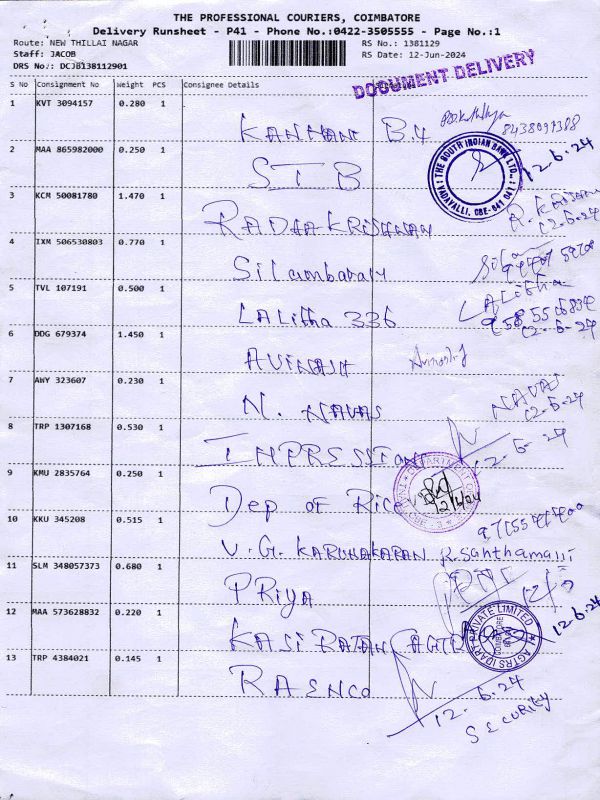 THE PROFESSIONAL COURIERS, COIMBATORE
Delivery Runsheet - P41 - Phone No.:0422-3505555 - Page No.:1
Route: NEW THILLAI NAGAR
Staff: JACOB
DRS No.: DCJB138112901
RS No.: 1381129
RS Date: 12-Jun-2024
DOCUMENT DELIVERY
S No Consignment No Weight PCS Consignee Details
1 KVT 3094157 0.280 1 KANNAN B.4
8438097388
2 MAA 865982000 0.250 1 SIB
THE SOUTH INDIAN BANK LTD., VADAVALLI, CBE-641 041
12.6.24
3 KCM 50081780 1.470 1 RADHAKRISHNAN
12-6-24
4 IXM 506530803 0.770 1 Silambarasn
5 TVL 107191 0.500 1 LALitha 336
LALitha
12-6-24
6 DDG 679374 1.450 1 AVINASH
7 AWY 323607 0.230 1 N. NAVAS
NAVAS
12-6-24
8 TRP 1307168 0.530 1 IMPRESSIONS
12-6-24
9 KMU 2835764 0.250 1 Dep of Rice
DEPARTMENT OF
12/6/24
10 KKU 345208 0.515 1 V.G. KARUNAKARAN R. Santhamani
11 SLM 348057373 0.680 1 PRIYA
12 MAA 573628832 0.220 1 KASI RATAN
PRIVATE LIMITED
COIMBATORE
12.6.24
13 TRP 4384021 0.145 1 RAENCO
12.6.24
SECURITY